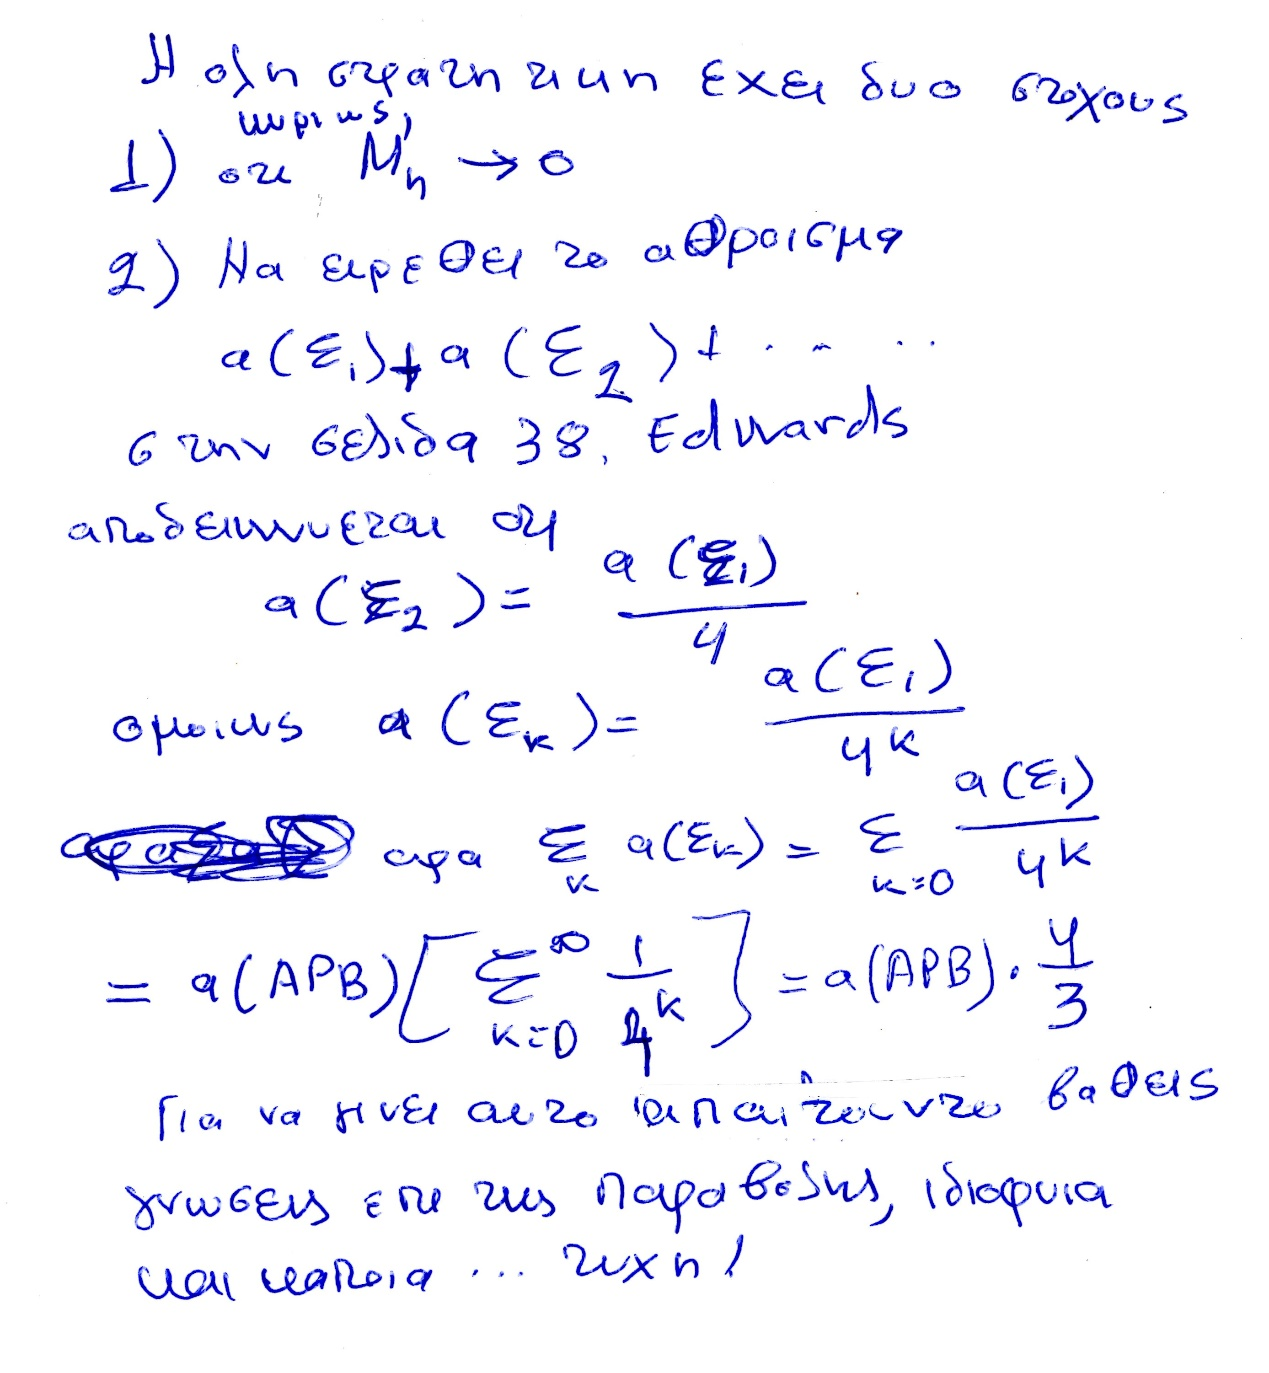 Η ολη στρατηγικη εχει δυο στοχους
κυριως,
1) οτι Μη → 0
2) Να ειρεθει το αθροισμα
a(Σ₁) + a(Σ₂) + . . . .
στην σελιδα 38, Edwards
αποδεικνυεται οτι
a(Σ₂) = a(Σ₁)/4
ομοιως a(Σκ) = a(Σ₁)/4^κ
αρα Σ_κ a(Σκ) = Σ_{κ=0} a(Σ₁)/4^κ
= a(APB) [Σ_{κ=0}^∞ 1/4^κ] = a(APB) · 4/3
Για να γινει αυτο απαιτουντο βαθεις
γνωσεις επι της παραβολης, ιδιοφυια
και καποια ... τυχη !